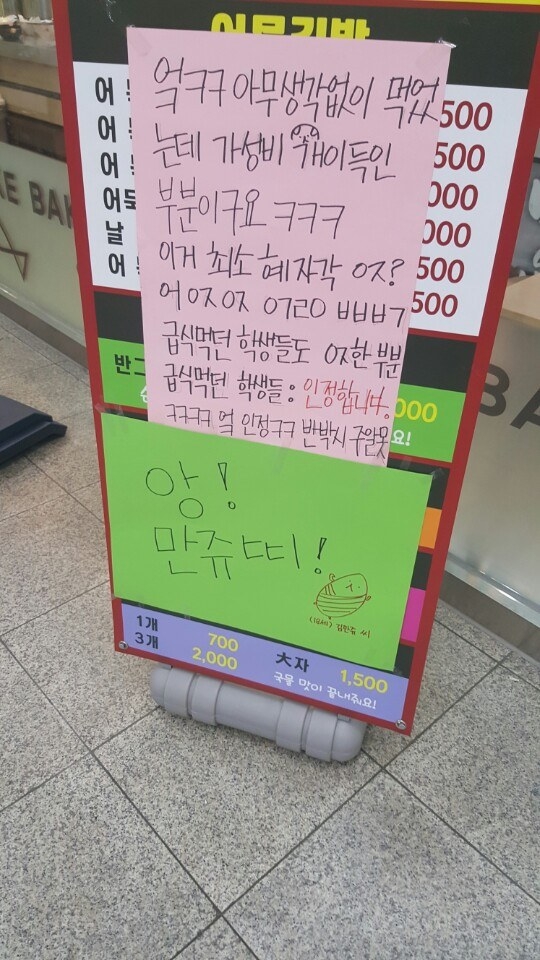 어묵김밥
어
500
어
500
어
000
어묵
000
날
500
어
500
억ㅋㅋ 아무생각없이 먹었
는데 가성비 개이득인
부분이구요 ㅋㅋㅋ
이거 최소 혜자각 ㅇㅈ?
어 ㅇㅈㅇㅈ ㅇㄱㄹㅇ ㅂㅂㅂㄱ
급식먹던 학생들도 ㅇㅈ한 부분
급식먹던 학생들: 인정합니다.
ㅋㅋㅋㅋ 얼 인정ㅋㅋ 반박시 주알못
반
000
요!
앙!
만쥬띠!
(14세) 김만쥬 씨
1개 700
3개 2,000
大자 1,500
국물 맛이 끝내줘요!
BA